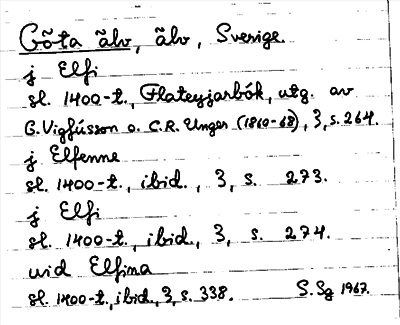 Göta älv, älv, Sverige.
j Elfi
sl. 1400-t., Flateyjarbók, utg. av
G. Vigfússon o. C.R. Unger (1860-68), 3, s. 264.
j Elfenne
sl. 1400-t., ibid., 3, s. 273.
j Elfi
sl. 1400-t., ibid., 3, s. 274.
uid Elfina
sl. 1400-t., ibid., 3, s. 338. S.Sg 1967.